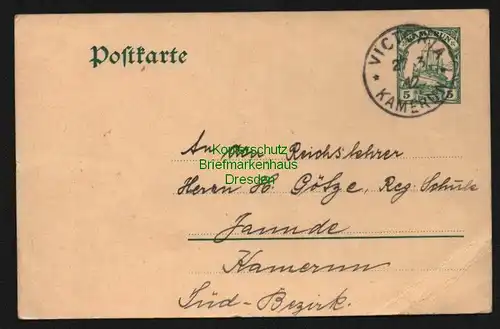 Postkarte
KAMERUN
5 5
* VICTORIA *
KAMERUN
An den Reichslehrer
Kopierschutz
Briefmarkenhaus
Dresden
Herrn H. Götze, Reg. Schule
Jaunde
Kamerun
Süd-Bezirk.